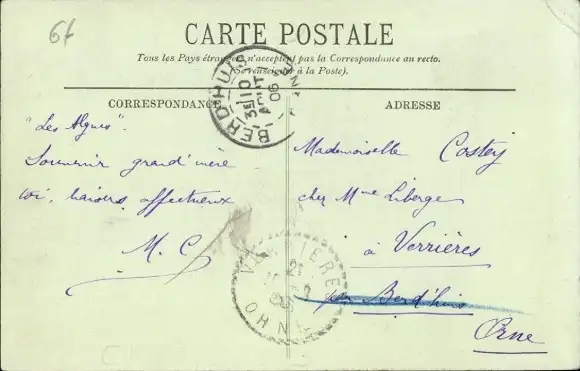 6f
CARTE POSTALE
Tous les Pays étrangers n'acceptent pas la Correspondance au recto.
(Se renseigner à la Poste).
CORRESPONDANCE
ADRESSE
"Les Algues".
Souvenir grand'mère
toi, baisers affectueux
M. C
Mademoiselle Costey
chez Mme Liberge
à Verrières
par Berd'huis
Orne
BERD'HUIS
3E 10
AOUT
06
VERRIERES
21
ORNE